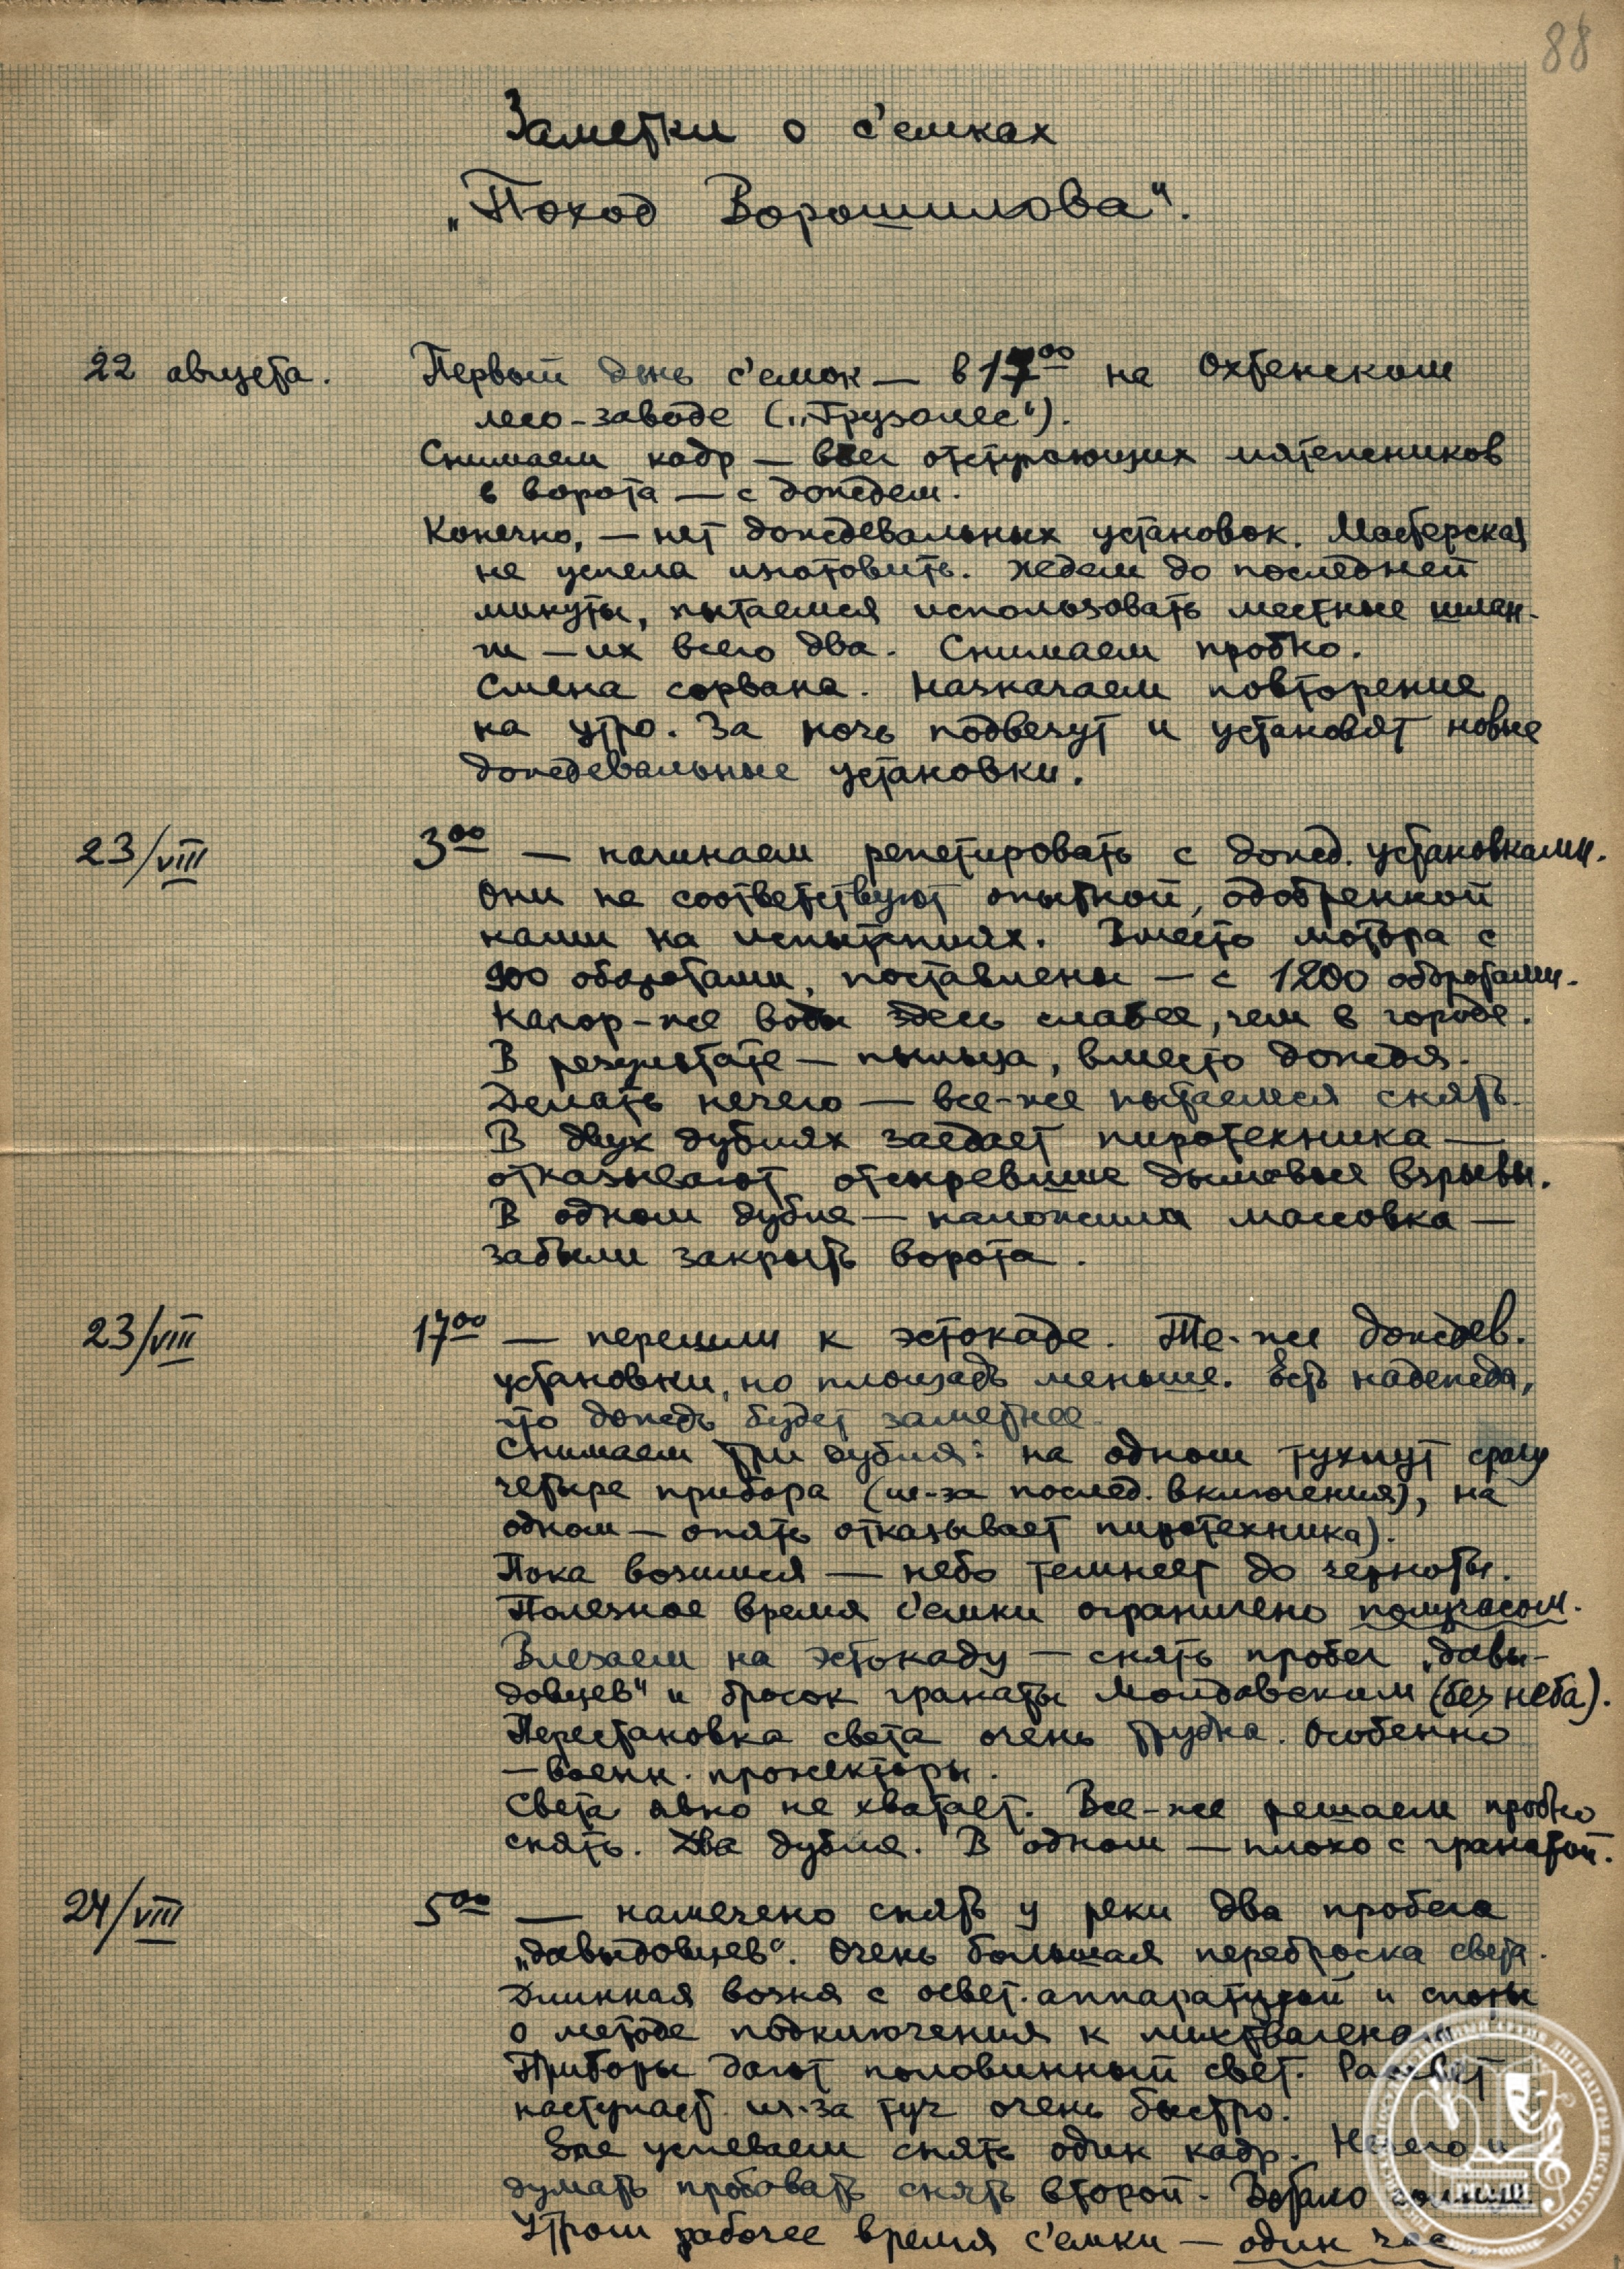 88
Заметки о с'емках
„Поход Ворошилова".
22 августа. Первый день с'емок — в 17⁰⁰ на Охтенском
лесо-заводе („Трузолес").
Снимаем кадр — бег отступающих мятежников
в ворота — с дождем.
Конечно, — нет дождевальных установок. Мастерская
не успела изготовить. Ждем до последней
минуты, пытаемся использовать местные шлан-
ги — их всего два. Снимаем пробно.
Смена сорвана. Назначаем повторение
на утро. За ночь подвезут и установят новые
дождевальные установки.
23/VIII 3⁰⁰ — начинаем репетировать с дожд. установками.
Они не соответствуют опытной, одобренной
нами на испытаниях. Вместо мотора с
900 оборотами, поставлены — с 1200 оборотами.
Напор-же воды здесь слабее, чем в городе.
В результате — пыльца, вместо дождя.
Делать нечего — все-же пытаемся снять.
В двух дублях заедает пиротехника —
отказывают отсыревшие дымовые взрывы.
В одном дубле — наложила массовка —
забыли закрыть ворота.
23/VIII 17⁰⁰ — перешли к эстокаде. Те-же дождев.
установки, но площадь меньше. Есть надежда,
что дождь будет заметнее.
Снимаем три дубля: на одном тухнут сразу
четыре прибора (из-за послед. включения), на
одном — опять отказывает пиротехника).
Пока возимся — небо темнеет до черноты.
Полезное время с'емки ограничено получасом.
Влезаем на эстокаду — снять пробег „давы-
довцев" и бросок гранаты Молдавским (без неба).
Перестановка света очень трудна. Особенно
— военн. прожекторы.
Света явно не хватает. Все-же решаем пробно
снять. Два дубля. В одном — плохо с гранатой.
24/VIII 5⁰⁰ — намечено снять у реки два пробега
„давыдовцев". Очень большая переброска света.
Длинная возня с освет. аппаратурой и споры
о методе подключения к лихтвагенам.
Приборы дают половинный свет. Рассвет
наступает из-за туч очень быстро.
Еле успеваем снять один кадр. Нечего и
думать пробовать снять второй.
Утром рабочее время с'емки — один час